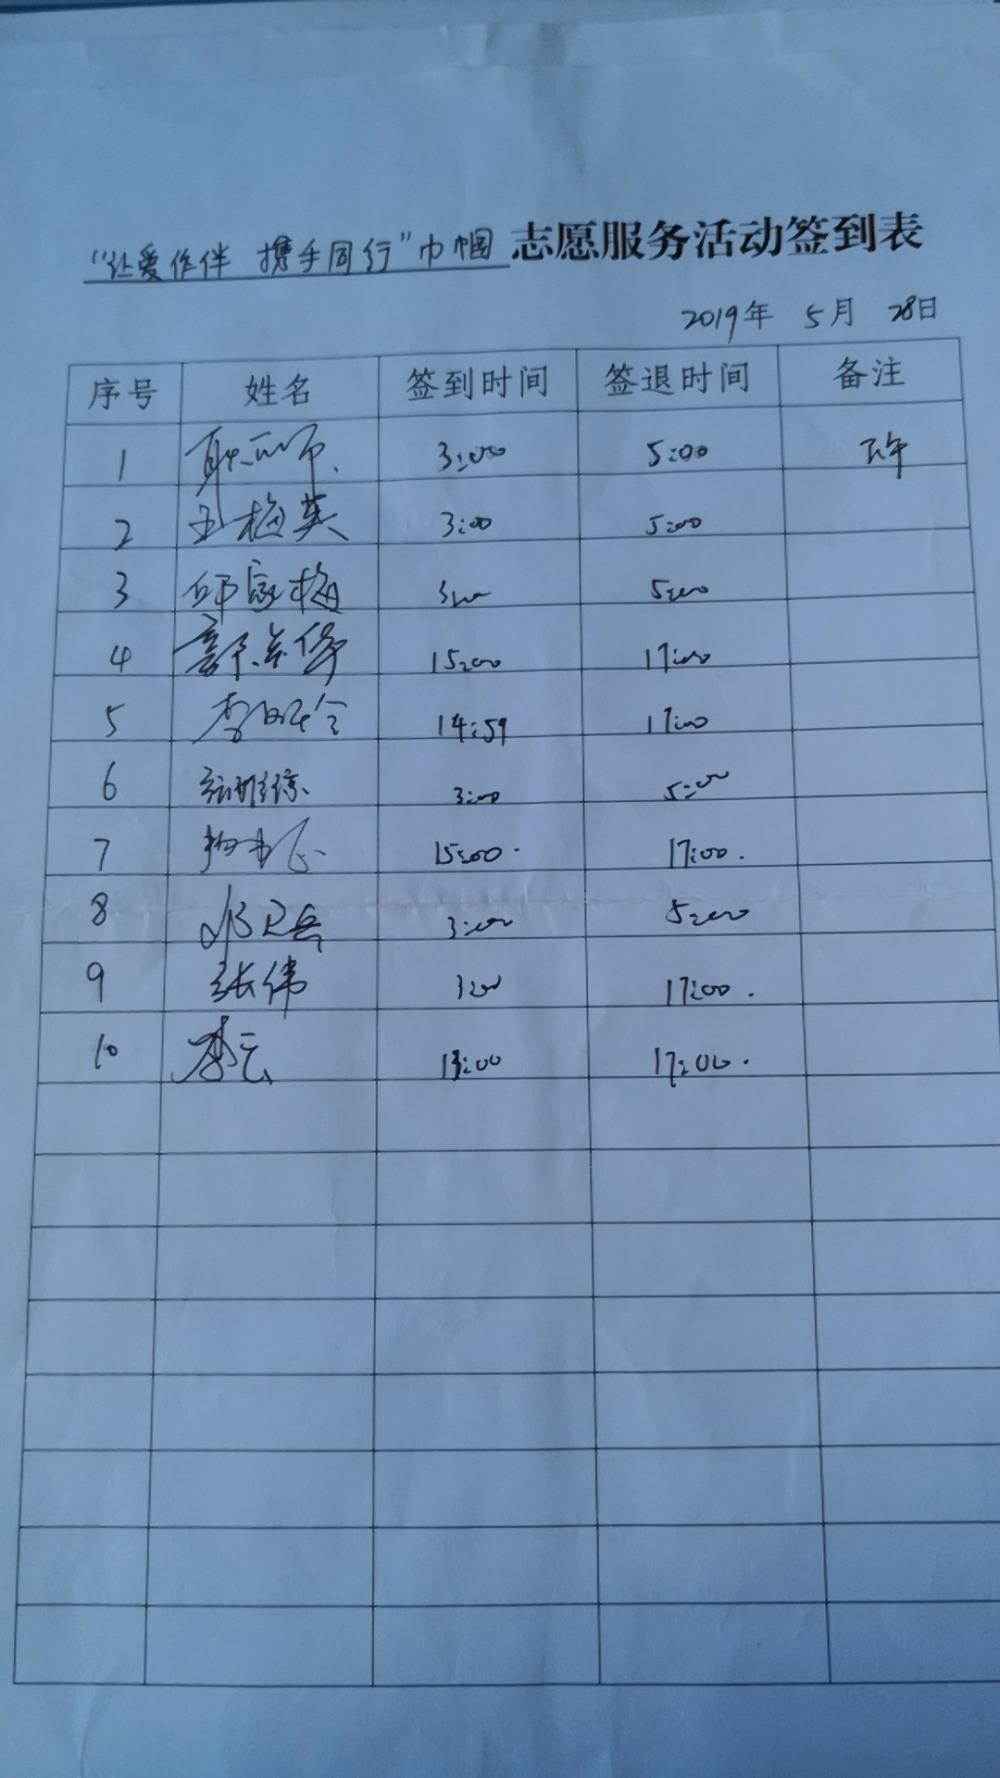 “让爱作伴 携手同行”巾帼 志愿服务活动签到表
2019年 5月 28日
序号 姓名 签到时间 签退时间 备注
1 3:00 5:00 下午
2 王梅英 3:00 5:00
3 邱家梅 3:00 5:00
4 15:00 17:00
5 14:59 17:00
6 3:00 5:00
7 15:00. 17:00.
8 3:00 5:00
9 张伟 3:00 17:00.
10 李云 17:00.